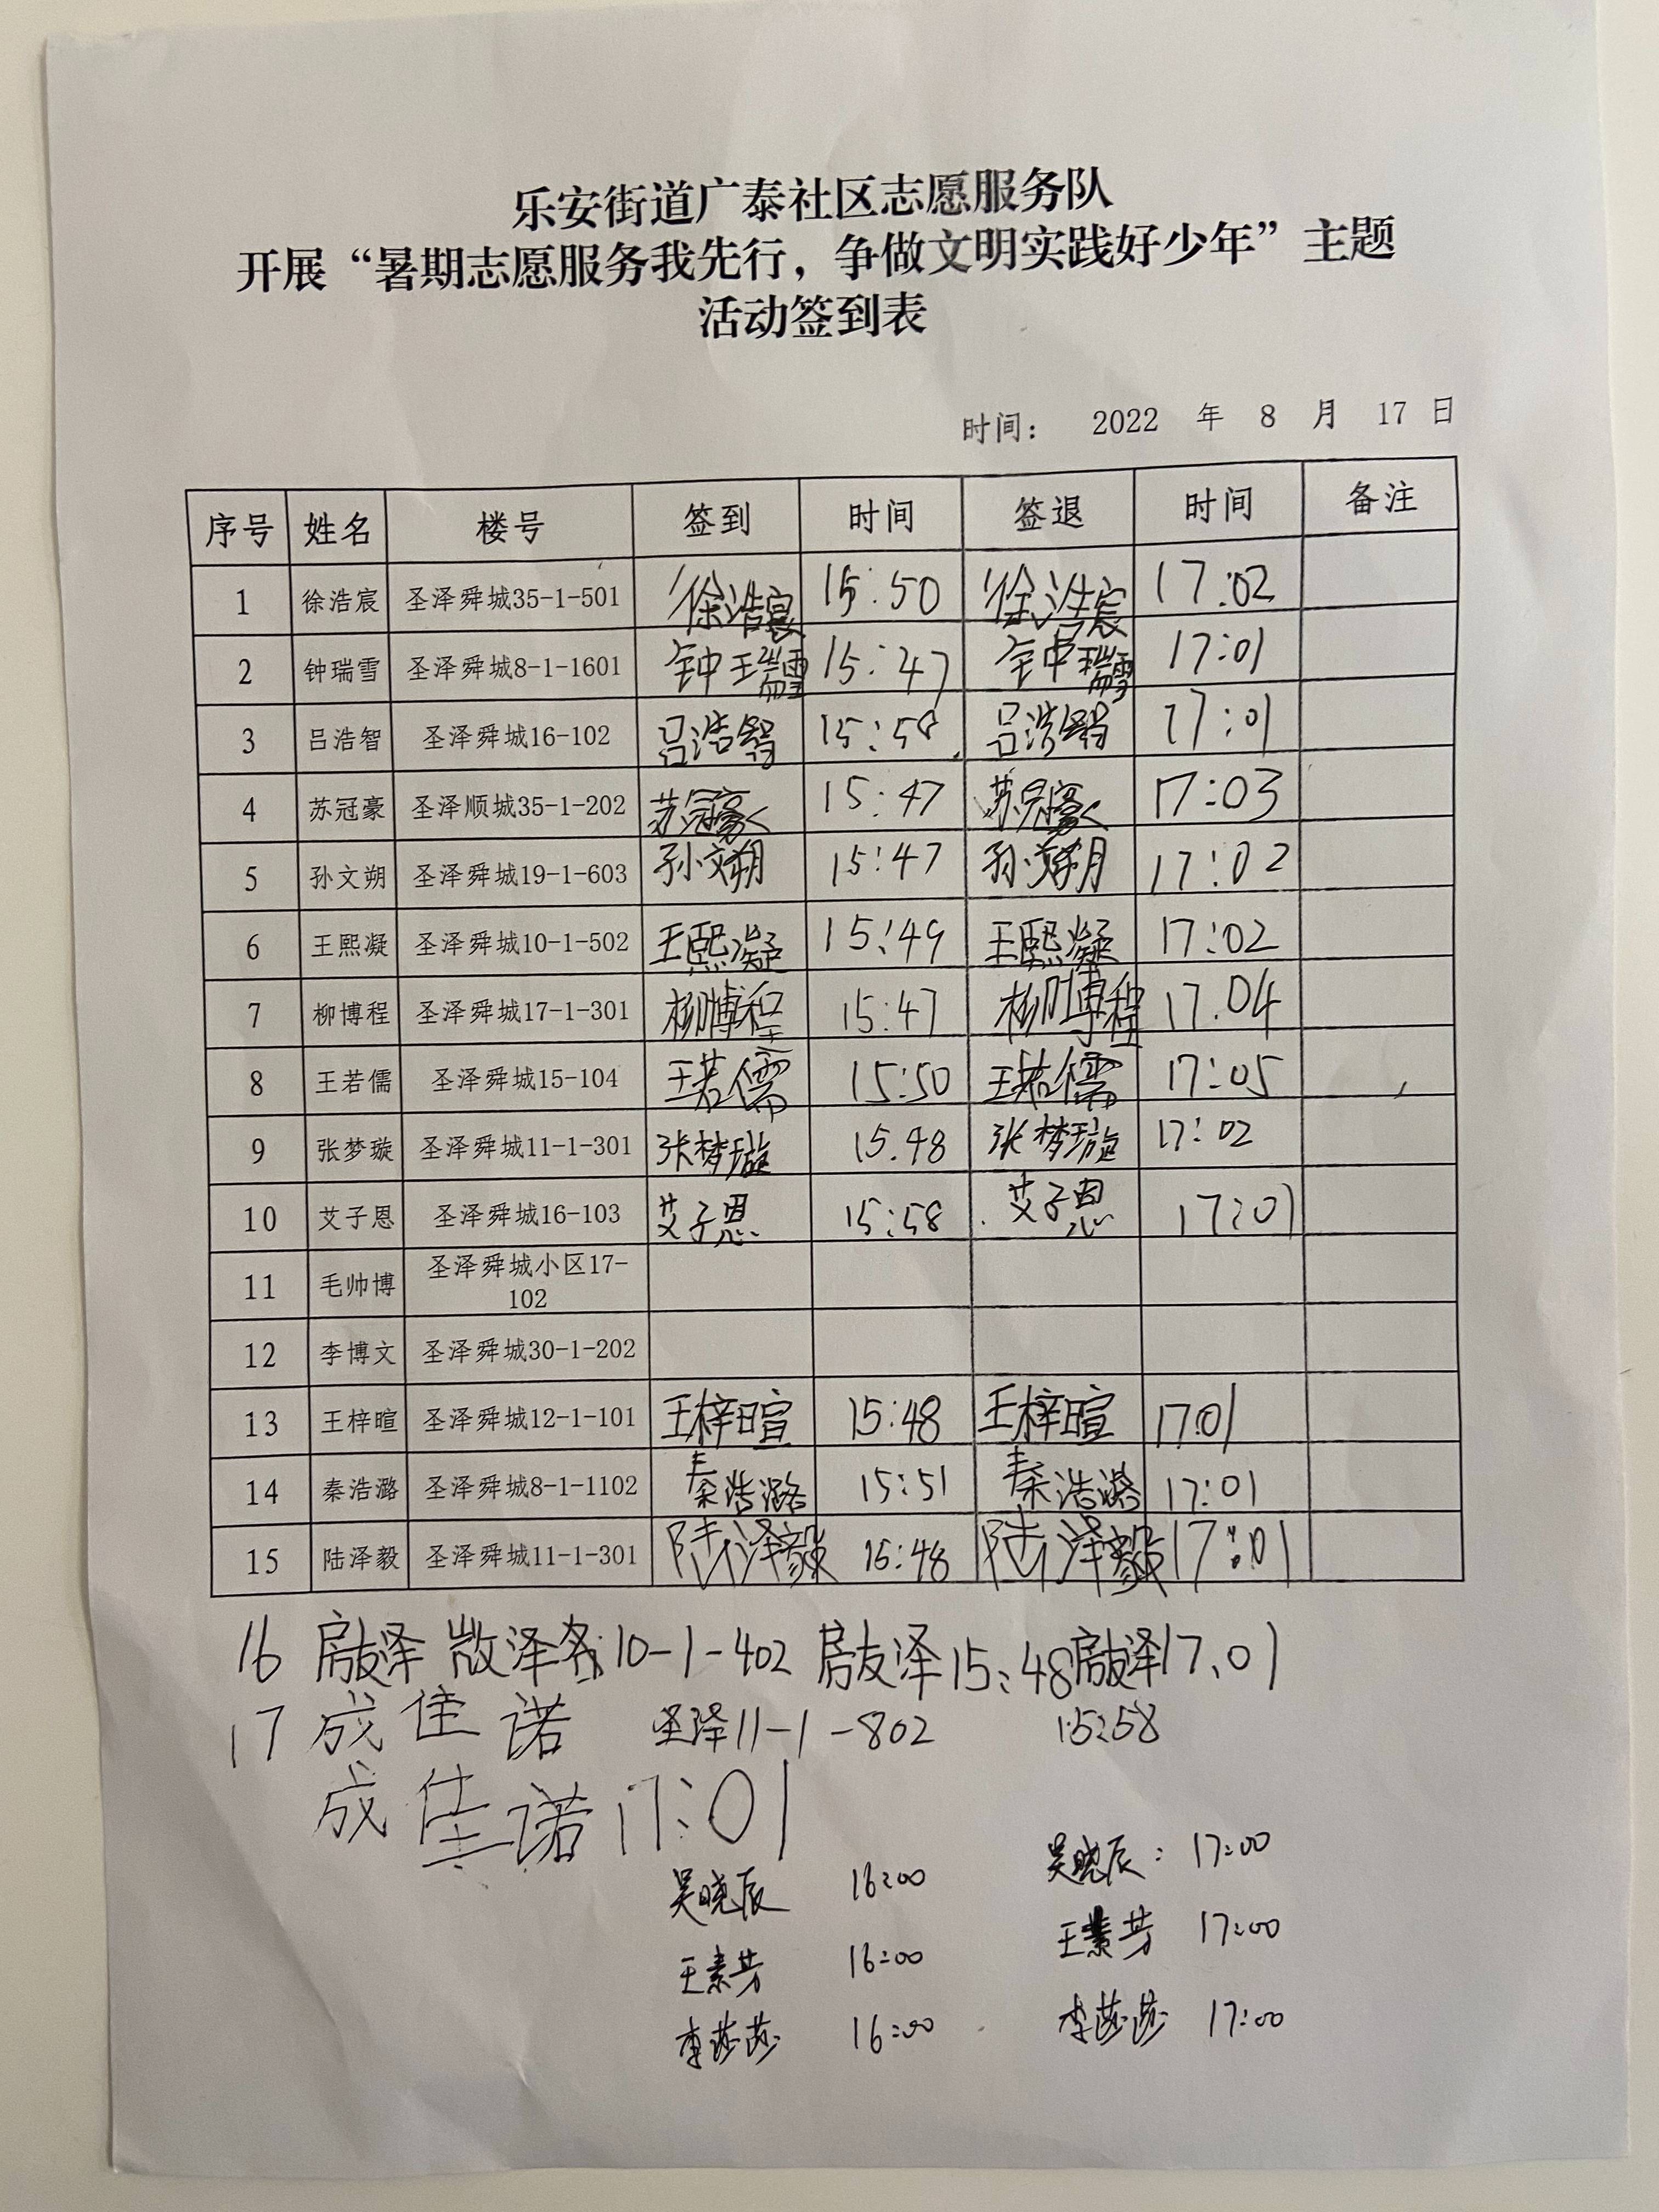 乐安街道广泰社区志愿服务队
开展“暑期志愿服务我先行，争做文明实践好少年”主题
活动签到表
时间： 2022 年 8 月 17 日
序号 姓名 楼号 签到 时间 签退 时间 备注
1 徐浩宸 圣泽舜城35-1-501 徐浩宸 15:50 徐浩宸 17:02
2 钟瑞雪 圣泽舜城8-1-1601 钟瑞雪 15:47 钟瑞雪 17:01
3 吕浩智 圣泽舜城16-102 吕浩智 15:58 吕浩智 17:01
4 苏冠豪 圣泽顺城35-1-202 苏冠豪 15:47 苏冠豪 17:03
5 孙文朔 圣泽舜城19-1-603 孙文朔 15:47 孙文朔 17:02
6 王熙凝 圣泽舜城10-1-502 王熙凝 15:49 王熙凝 17:02
7 柳博程 圣泽舜城17-1-301 柳博程 15:47 柳博程 17.04
8 王若儒 圣泽舜城15-104 王若儒 15:50 王若儒 17:05
9 张梦璇 圣泽舜城11-1-301 张梦璇 15.48 张梦璇 17:02
10 艾子恩 圣泽舜城16-103 艾子恩 15:58 艾子恩 17:01
11 毛帅博 圣泽舜城小区17-
102
12 李博文 圣泽舜城30-1-202
13 王梓暄 圣泽舜城12-1-101 王梓暄 15:48 王梓暄 1701
14 秦浩潞 圣泽舜城8-1-1102 秦浩潞 15:51 秦浩潞 17:01
15 陆泽毅 圣泽舜城11-1-301 陆泽毅 15:48 陆泽毅 17:01
16 房友泽 10-1-402 房友泽 15:48 房友泽 17.01
17 成佳诺 圣泽11-1-802 15:58
成佳诺 17:01
吴晓辰 16:00 吴晓辰: 17:00
王素芳 16:00 王素芳 17:00
李莎莎 16:00 李莎莎 17:00